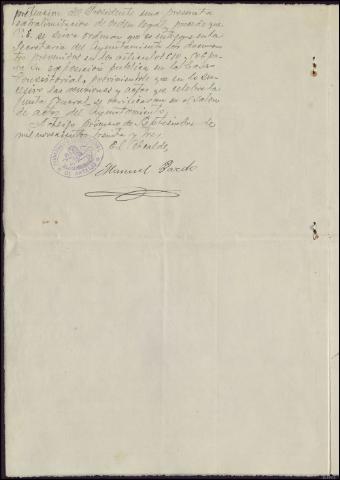 Presidente una presunta
extralimitación de orden legal, puede que
V.E. se sirva ordenar que se entregue en la
Secretaría del Ayuntamiento los documen
tos prevenidos en los artículos
en exposición pública en la Casa
Consistorial, previniendole que en lo su
cesivo las reuniones y actos que celebre la
Junta General, se verifiquen en el salón
de actos del Ayuntamiento,
primero de Septiembre de
mil novecientos treinta y tres,
El Alcalde,
Manuel Pardo